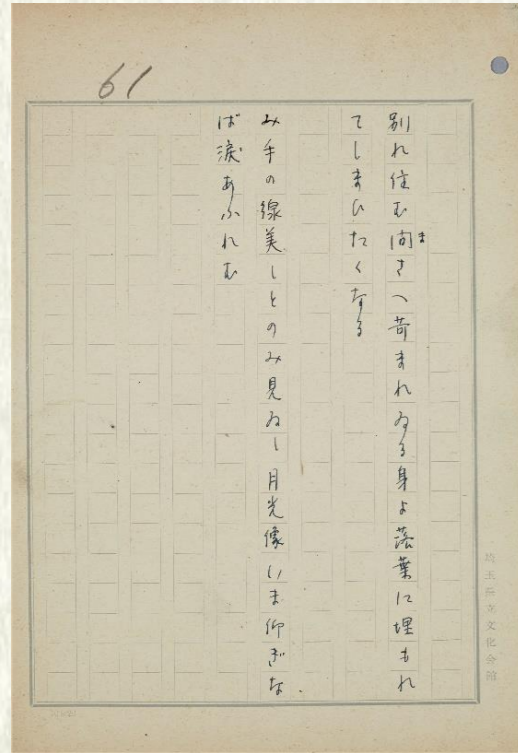 61
別れ住む間さへ苛まれゐる身よ落葉に埋もれ
ま
てしまひたくなる
み手の線美しとのみ見ゐし月光像いま仰ぎな
ば涙あふれむ
埼玉県立文化会館